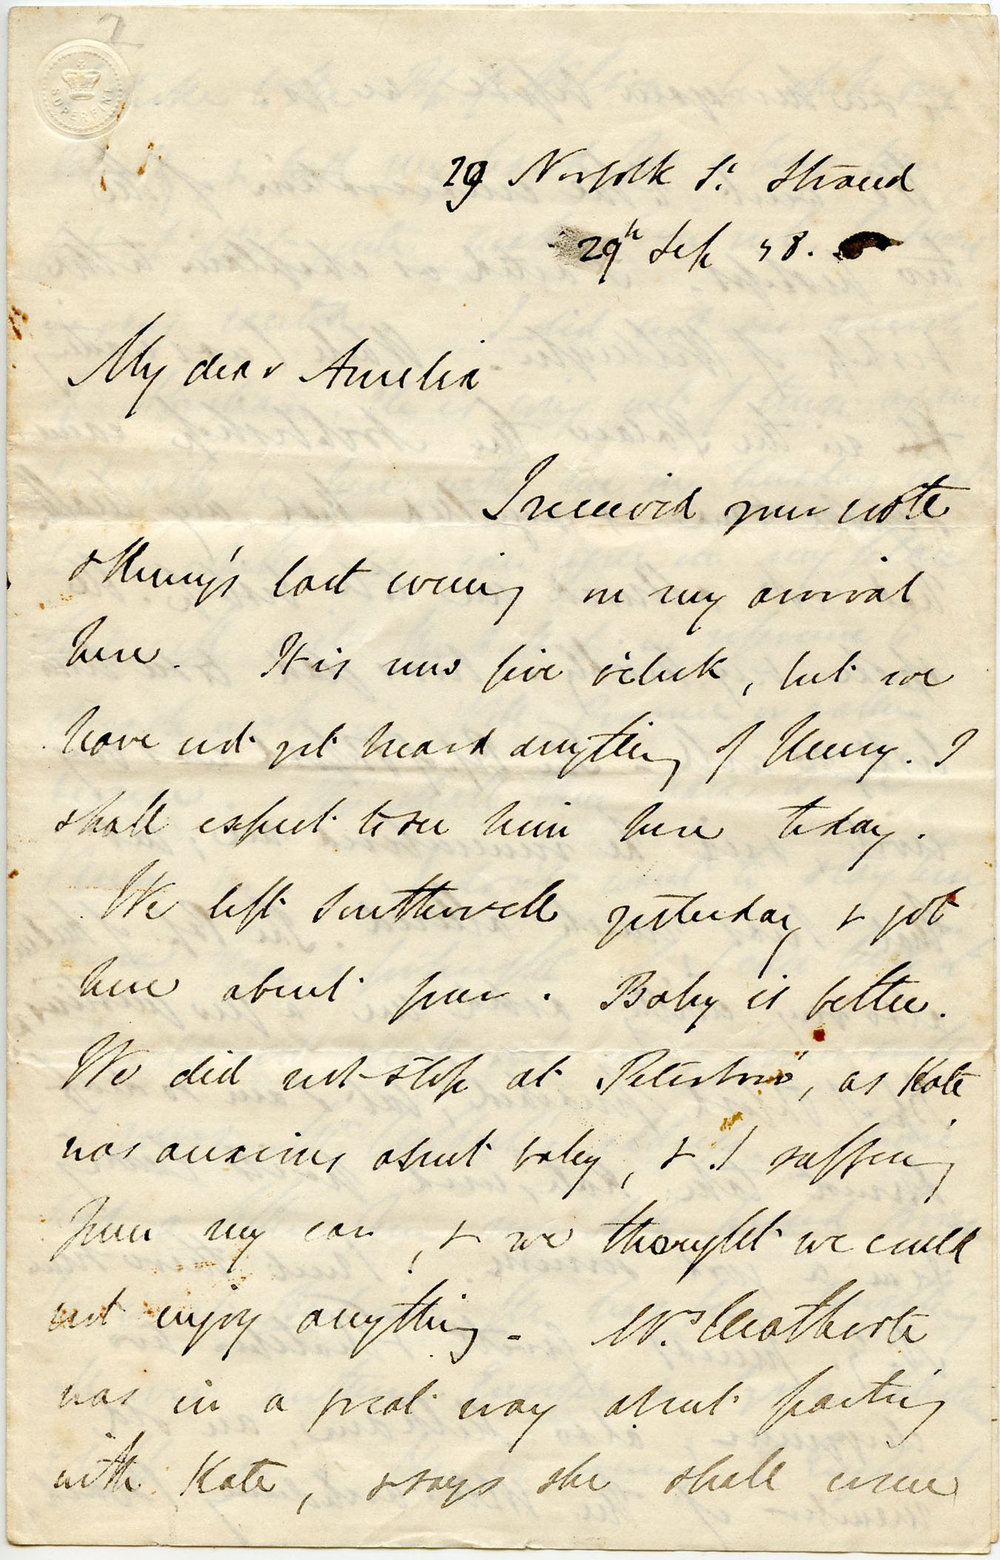 SUPERFINE
29 Norfolk St. Strand
29th Sep 58.
My dear Amelia
I received your note
& Henry's last evening on my arrival
here. It is now five o'clock, but we
have not yet heard anything of Henry. I
shall expect to see him here today.
We left Southwell yesterday & got
here about four. Baby is better.
We did not stop at Peterboro', as Kate
was anxious about baby, & I suffering
from my ear, & we thought we could
not enjoy anything. Mrs
was in a great way about parting
with Kate, & says she shall never